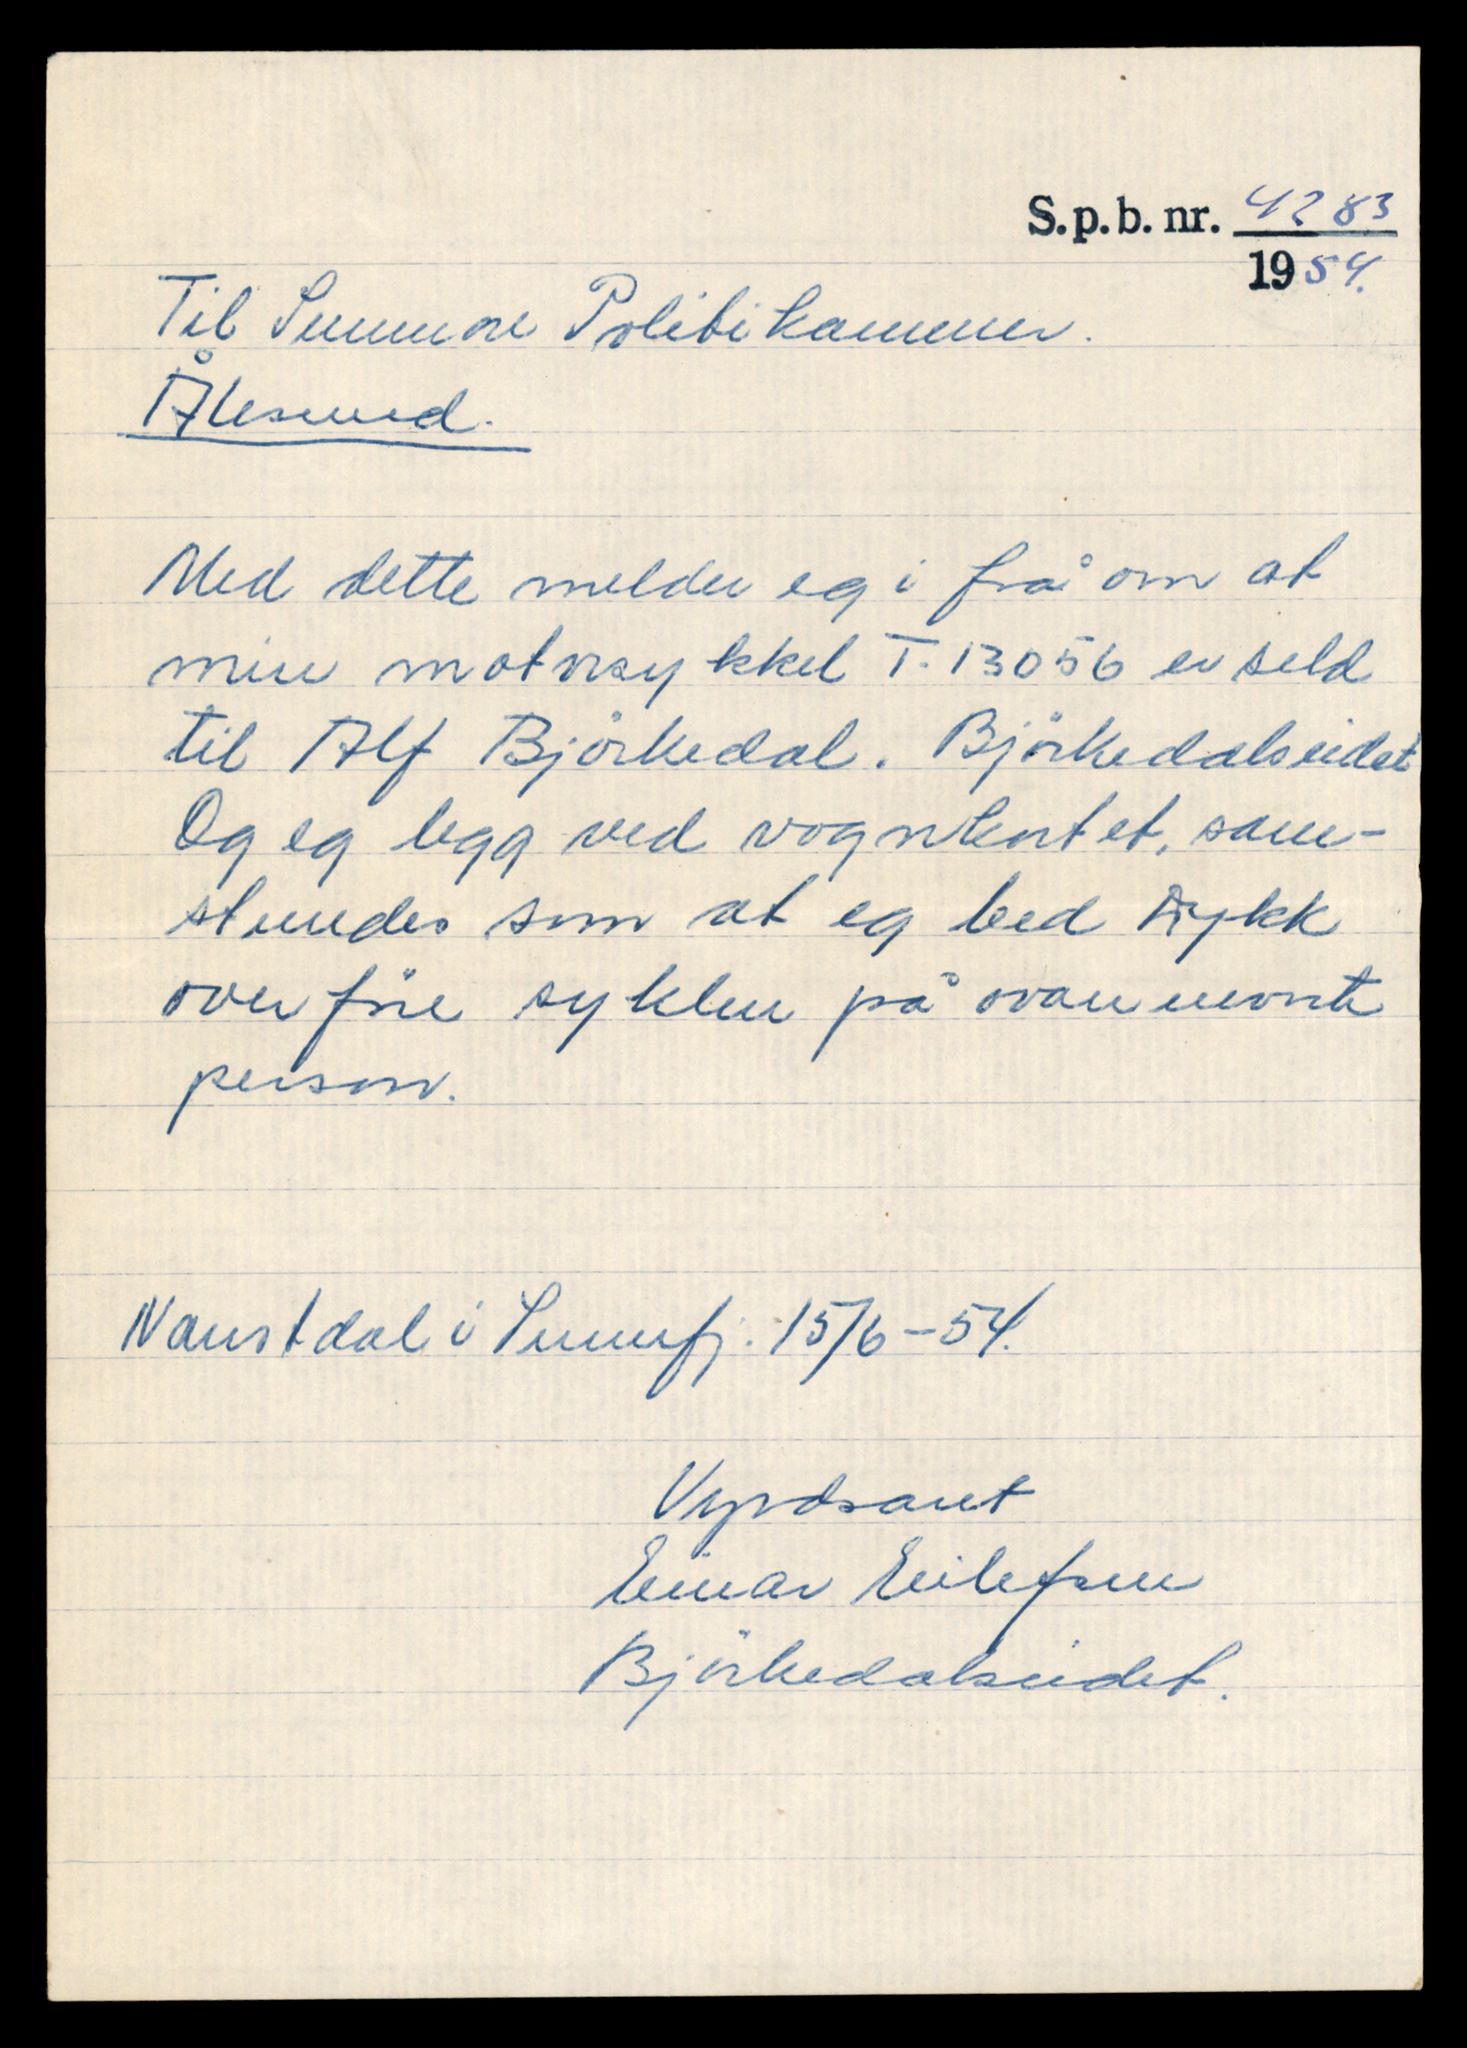 S.p.b. nr. 4283
1954.
Til Sunnmøre Politikammer.
Ålesund.
Med dette melder eg i frå om at
min motorsykkel T-13056 er seld
til Alf Björkedal. Björkedalseidet
Og eg legg ved vognkortet, sam-
stundes som at eg bed Dykk
overföre syklen på ovannevnte
person.
Naustdal i Sunnfj. 15/6-54.
Vyrdsamt
Einar Eilefsen
Björkedalseidet.